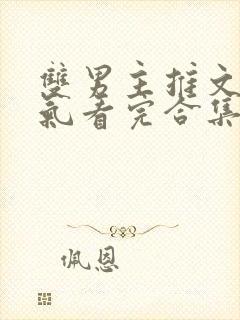 雙男主推文
氣看完合集
佩恩